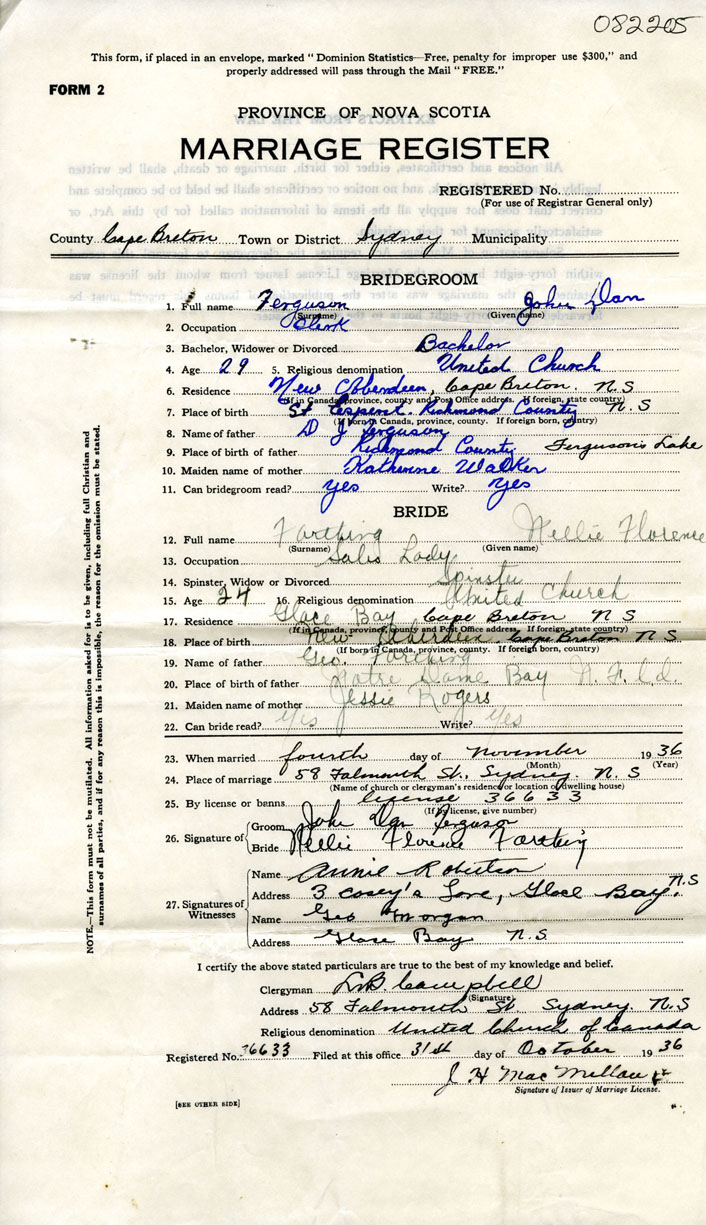 082205
This form, if placed in an envelope, marked "Dominion Statistics—Free, penalty for improper use $300," and
properly addressed will pass through the Mail "FREE."
FORM 2
PROVINCE OF NOVA SCOTIA
MARRIAGE REGISTER
REGISTERED No.
(For use of Registrar General only)
County Cape Breton Town or District Sydney Municipality
BRIDEGROOM
1. Full name Ferguson John Dan
(Surname) (Given name)
2. Occupation Clerk
3. Bachelor, Widower or Divorced Bachelor
4. Age 29 5. Religious denomination United Church
6. Residence New Aberdeen, Cape Breton. N.S
(If in Canada, province, county and Post Office address. If foreign, state country)
7. Place of birth St Richmond County N.S
(If born in Canada, province, county. If foreign born, country)
8. Name of father D J Ferguson
9. Place of birth of father Richmond County Ferguson's Lake
10. Maiden name of mother Katherine Walker
11. Can bridegroom read? yes Write? yes
BRIDE
12. Full name Farthing Nellie Florence
(Surname) (Given name)
13. Occupation Sales Lady
14. Spinster, Widow or Divorced Spinster
15. Age 24 16. Religious denomination United Church
17. Residence Glace Bay Cape Breton N S
(If in Canada, province, county and Post Office address. If foreign, state country)
18. Place of birth New Aberdeen Cape Breton N S
(If born in Canada, province, county. If foreign born, country)
19. Name of father Geo. Farthing
20. Place of birth of father Notre Dame Bay N.F.L.d.
21. Maiden name of mother Jessie Rogers
22. Can bride read? Yes Write? Yes
23. When married fourth day of November 1936
(Month) (Year)
24. Place of marriage 58 Falmouth St., Sydney. N. S
(Name of church or clergyman's residence or location of dwelling house)
25. By license or banns license 36633
(If by license, give number)
26. Signature of Groom John Dan Ferguson
Bride Nellie Florence Farthing
27. Signatures of Witnesses
Name Annie Robertson
Address 3 Casey's Lane, Glace Bay. N.S
Name Geo Morgan
Address Glace Bay N.S.
I certify the above stated particulars are true to the best of my knowledge and belief.
Clergyman Campbell
(Signature)
Address 58 Falmouth St Sydney. N.S
Religious denomination United Church of Canada
Registered No. 36633 Filed at this office 31st day of October 1936
J H MacMillan
Signature of Issuer of Marriage License.
[SEE OTHER SIDE]
NOTE.—This form must not be mutilated. All information asked for is to be given, including full Christian and
surnames of all parties, and if for any reason this is impossible, the reason for the omission must be stated.